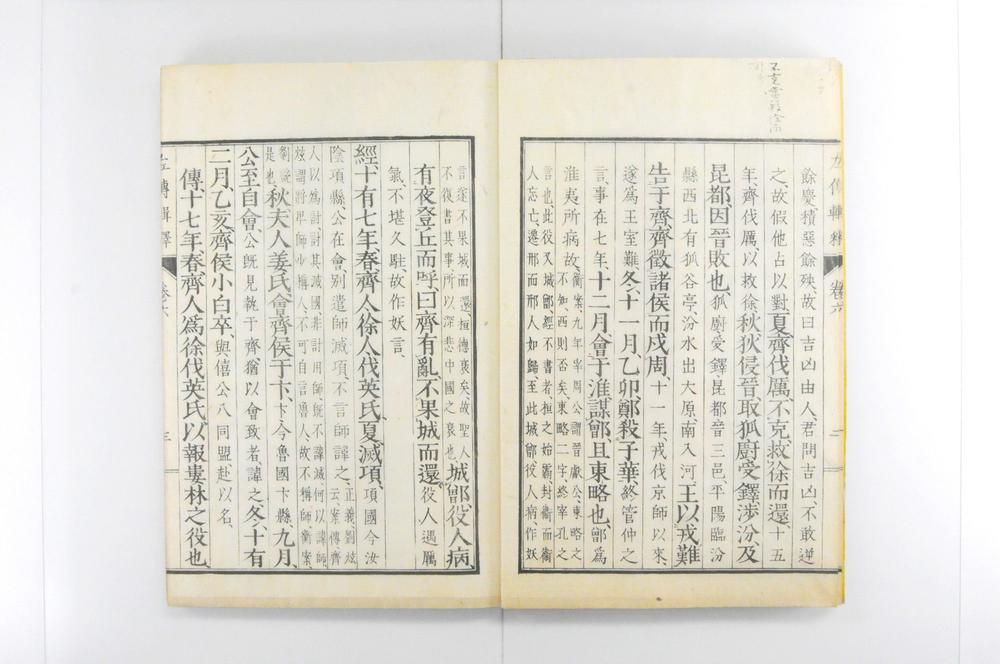 左傳輯釋 卷六 二
餘慶、積惡餘殃、故曰吉凶由人、君問吉凶、不敢逆
之、故假他占以對、夏、齊伐厲、不克、救徐而還、十五
年、齊伐厲、以救徐、秋、狄侵晉、取狐廚受鐸、涉汾、及
昆都、因晉敗也、狐廚、受鐸、昆都、晉三邑、平陽臨汾
縣西北有狐谷亭、汾水出大原、南入河、王以戎難
告于齊、齊徵諸侯而戍周、十一年、戎伐京師以來、
遂爲王室難、冬、十一月、乙卯、鄭殺子華、終管仲之
言、事在七年、十二月、會于淮、謀鄫、且東略也、鄫爲
淮夷所病故、衡案、九年宰周公謂晉獻公、東略之
不知、西則否矣、東略二字、終宰孔之
言也、此役又城鄫、經不書者、桓之始霸、封衞而衞
人忘亡、遷邢而邢人如歸、至此城鄫、役人病、作妖
言、遂不果城而還、桓德衰矣、故聖人
不復書其事、所以深悲中國之衰也、城鄫、役人病、
有夜登丘而呼、曰齊有亂、不果城而還、役人遇厲
氣、不堪久駐、故作妖言、
經十有七年、春、齊人徐人伐英氏、夏、滅項、項國今汝
陰項縣、公在會、別遣師滅項、不言師、諱之、正義、劉炫
云、案傳齊
人以爲討、討其滅國、非討用師、既不諱滅、何以諱師、
炫謂將卑師少稱人、不可自言魯人、故不稱師、衡案、
劉説
是也、秋、夫人姜氏會齊侯于卞、卞今魯國卞縣、九月、
公至自會、公既見執于齊、猶以會致者、諱之、冬、十有
二月、乙亥、齊侯小白卒、與僖公八同盟、赴以名、
傳、十七年、春、齊人爲徐伐英氏、以報婁林之役也、
左傳輯釋 卷六 三